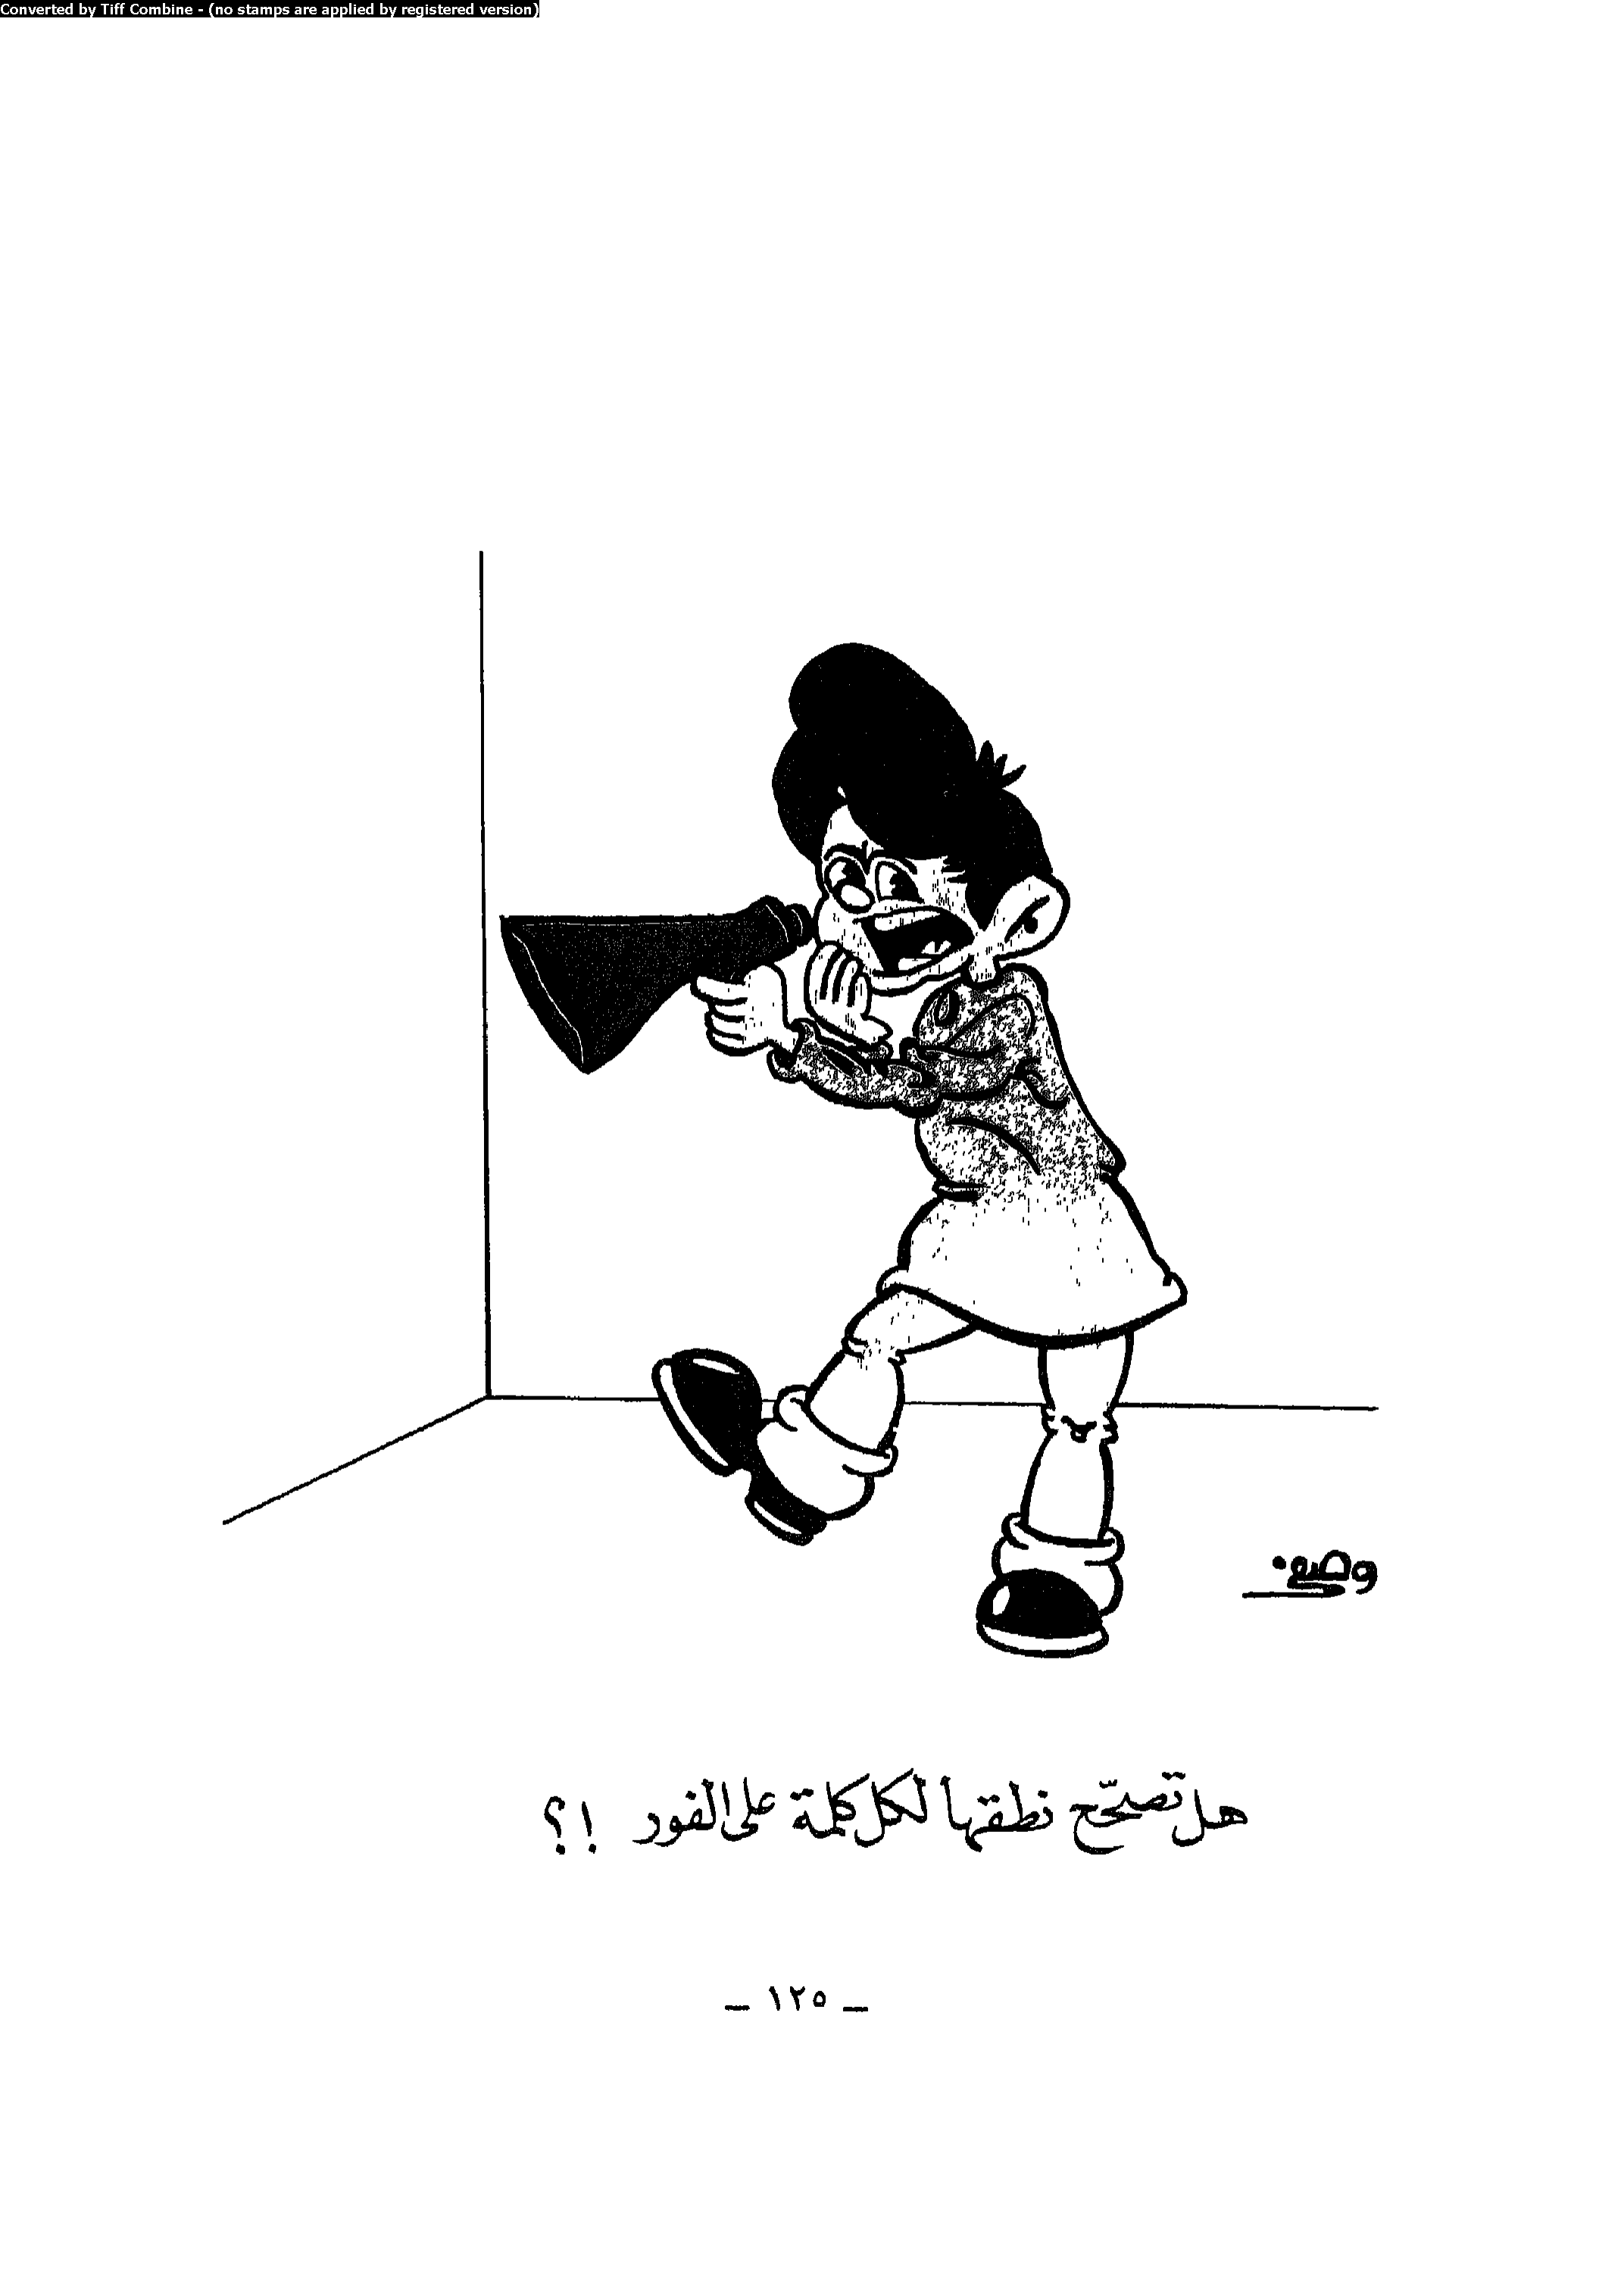 Converted by Tiff Combine - (no stamps are applied by registered version)
وصفي
هل تصحّح نطقها لكل كلمة على الفور !؟
– ١٢٥ –